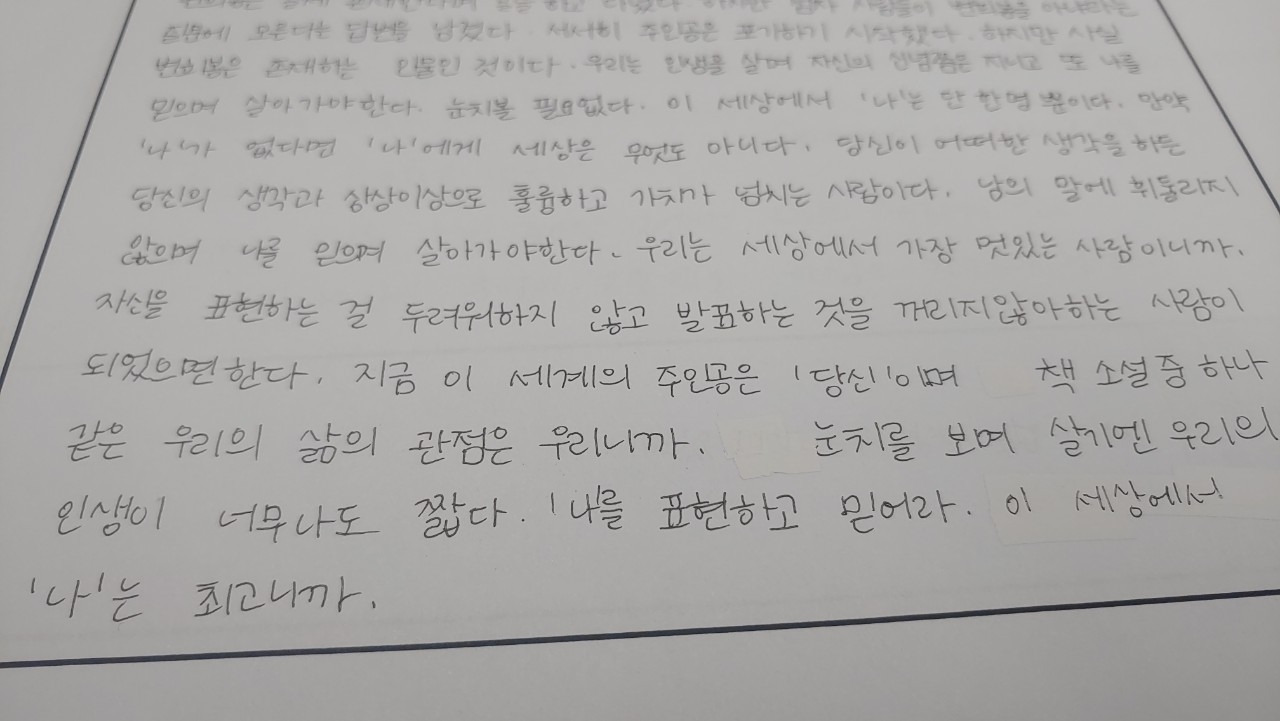 질문에 모른다는 답변들을 남겼다. 서서히 주인공은 포기하기 시작했다. 하지만 사실
변희봉은 존재하는 인물인 것이다. 우리는 인생을 살며 자신의 신념쯤은 지니고 또 나를
믿으며 살아가야한다. 눈치볼 필요없다. 이 세상에서 '나'는 단 한명 뿐이다. 만약
'나'가 없다면 '나'에게 세상은 무엇도 아니다. 당신이 어떠한 생각을 하든
당신의 생각과 상상이상으로 훌륭하고 가치가 넘치는 사람이다. 남의 말에 휘둘리지
않으며 나를 믿으며 살아가야한다. 우리는 세상에서 가장 멋있는 사람이니까.
자신을 표현하는 걸 두려워하지 않고 발표하는 것을 꺼리지않아하는 사람이
되었으면한다. 지금 이 세계의 주인공은 '당신'이며 책 소설 중 하나
같은 우리의 삶의 관점은 우리니까. 눈치를 보며 살기엔 우리의
인생이 너무나도 짧다. '나'를 표현하고 믿어라. 이 세상에서
'나'는 최고니까.